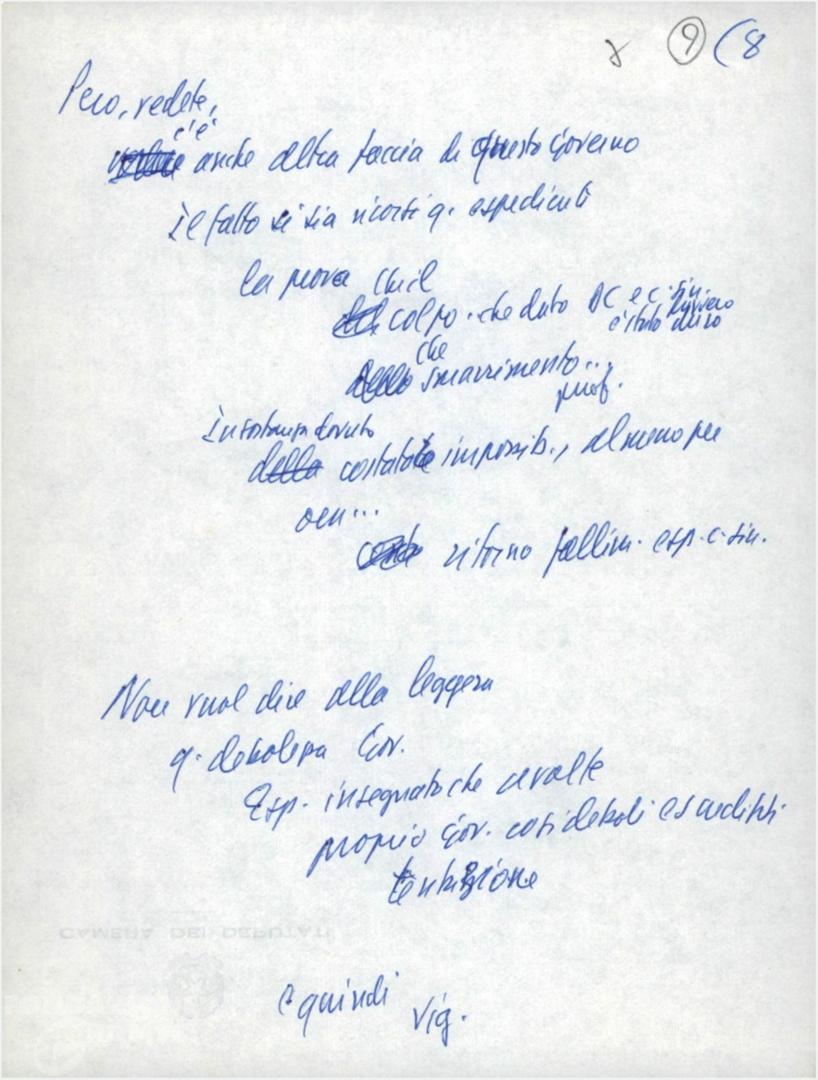 9 (8
Però, vedete,
c'è
anche altra faccia di questo Governo
Il fatto si sia ricorsi q. espedienti
la prova
colpo che dato DC e c. sin.
è stato duro
che
smarrimento...
prof.
In sostanza dovuto
della costatata impossib., almeno per
ora...
ritorno fallim. esp. c. sin.
Non vuol dire alla leggera
q. debolezza Gov.
Esp. insegnato che a volte
proprio Gov. così deboli e screditati
tentazione
CAMERA DEI DEPUTATI
E quindi vig.